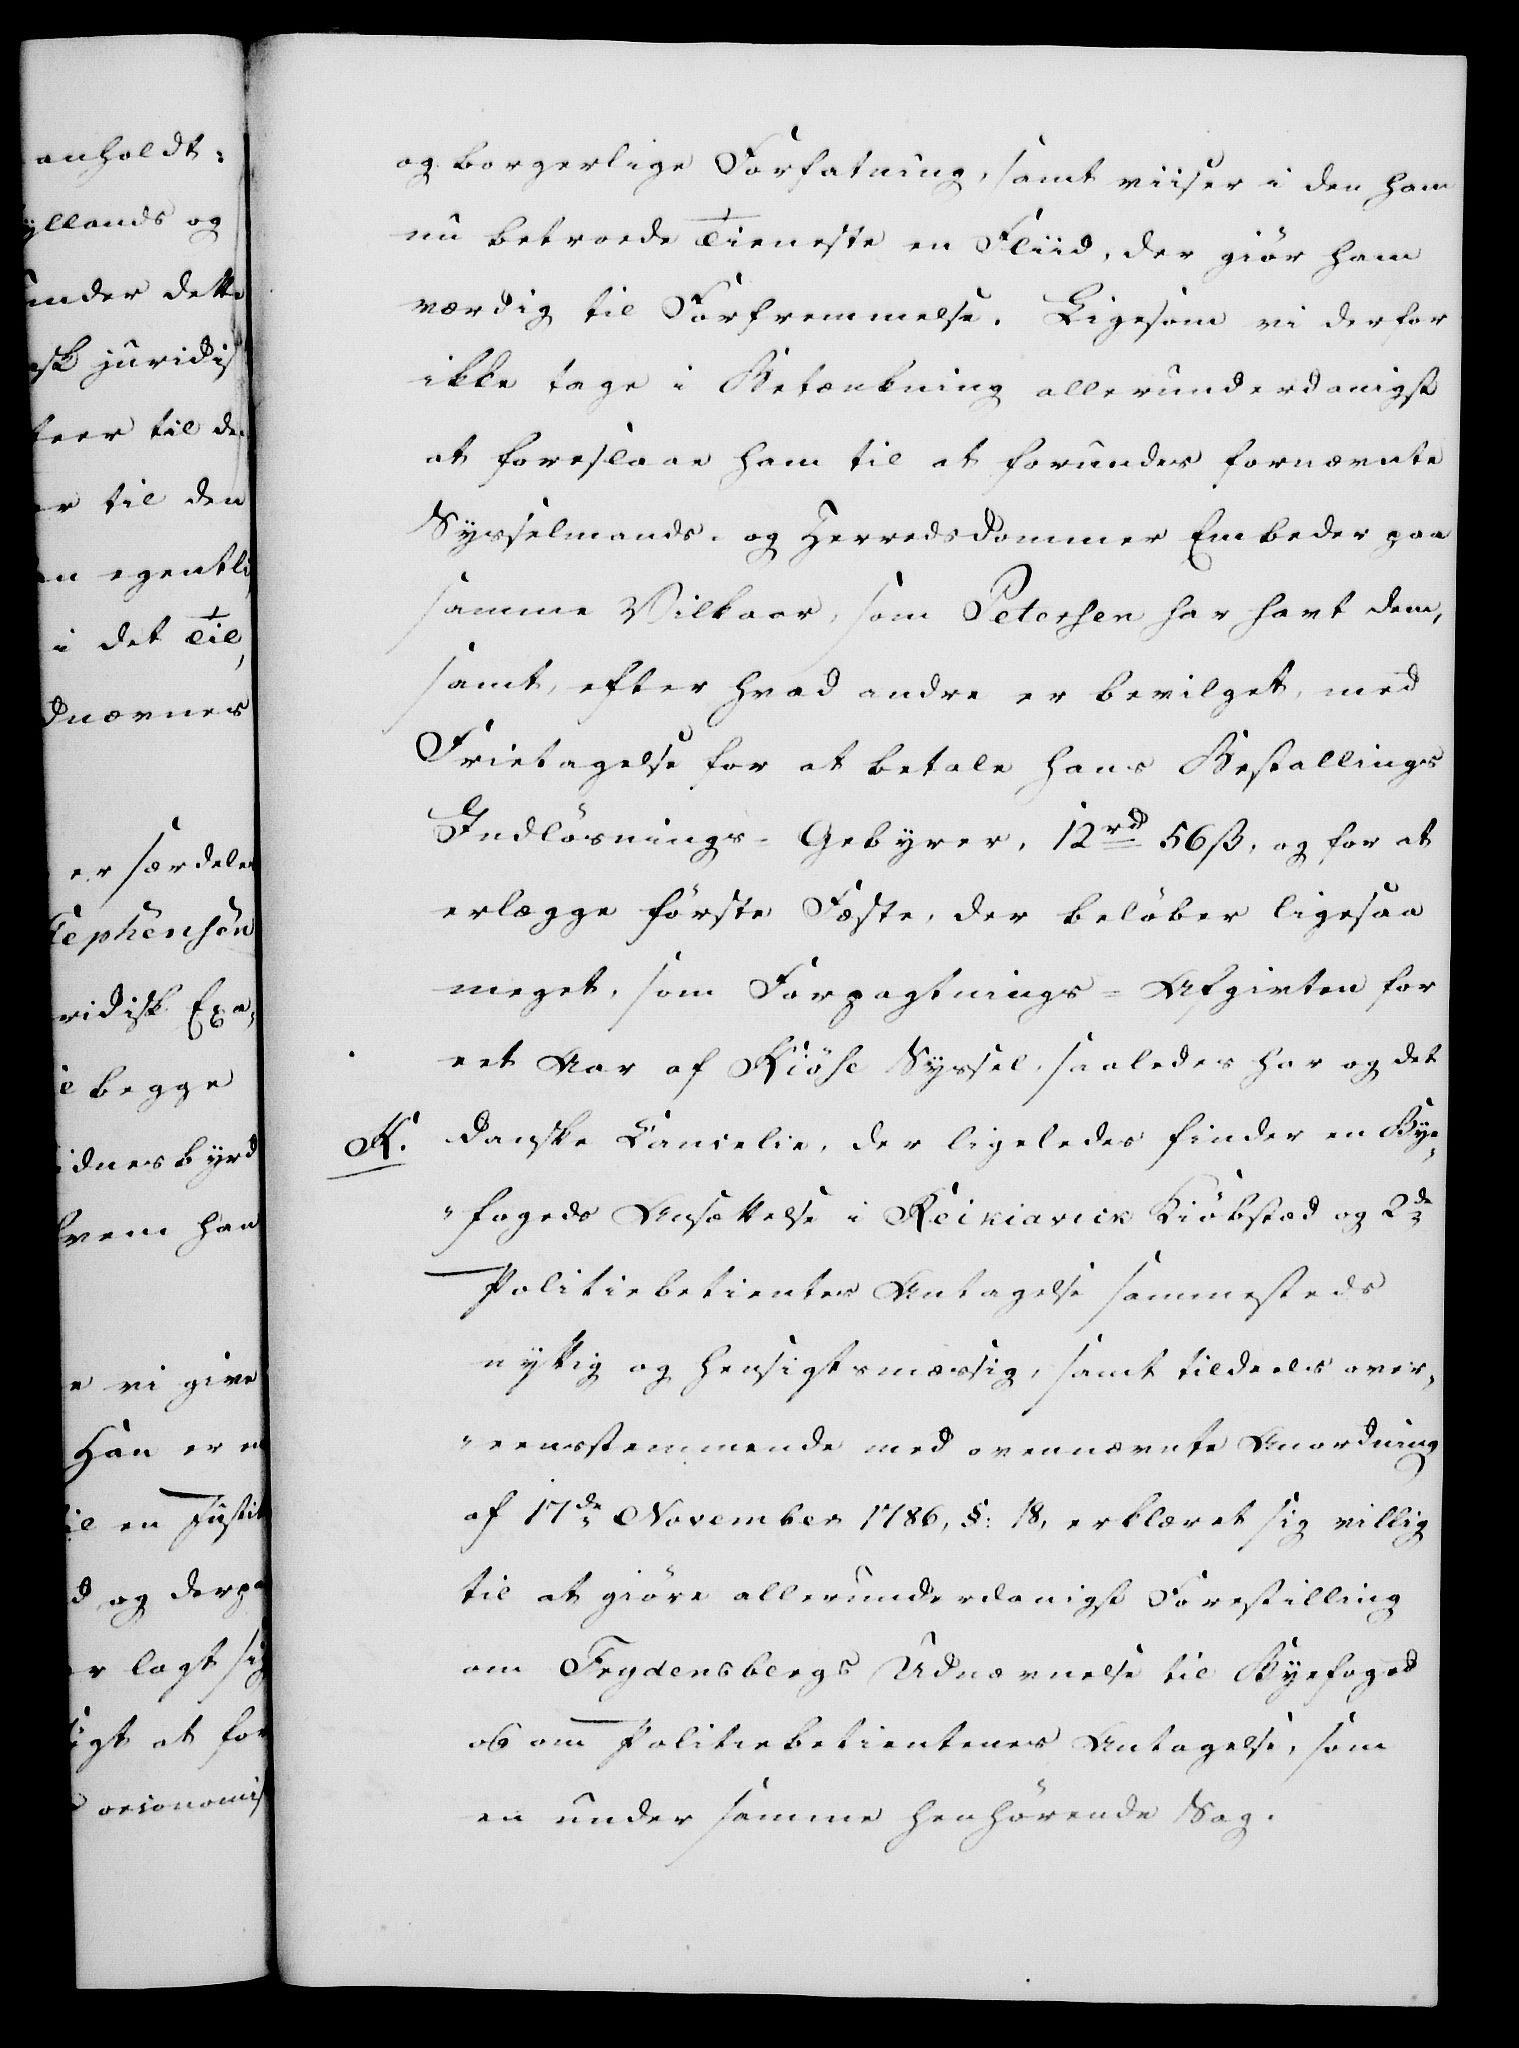 anholdt:
yllands og
under dette
sk juridis
teer til de
er til den
en egentli
i det Til,
dnævnes
er særdeles
tephensen
ridisk Exa,
e begge
idnesbyrd
hvem han
e vi give
Han er en
til en Justit
d, og derpa
er lagt sig
igt at for
oeconomis
og borgerlige Forfatning, samt viiser i den ham
nu betroede Tieneste en Fliid, der giör ham
værdig til Forfremmelse. Ligesom vi derfor
ikke tage i Betænkning allerunderdanigst
at foreslaae ham til at forundes fornævnte
Sysselmands- og Herredsdommer Embeder paa
samme Vilkaar, som Petersen har havt dem,
samt, efter hvad andre er bevilget, med
Frietagelse for at betale hans Bestallings
Indlösnings-Gebyrer, 12rd 56ß, og for at
erlægge förste Fæste, der belöber ligesaa
meget, som Forpagtnings-Afgivten for
eet Aar af Kiöse Syssel, saaledes har og det
K. danske Cancelie, der ligeledes finder en Bye,
"fogeds Ansættelse i Reikiavick Kiöbstæd og 2de
Politiebetientes Antagelse sammesteds
nyttig og hensigtsmæssig, samt tildeels over,
"eensstemmende med ovennævnte Anordning
af 17de November 1786, §: 18, erklæret sig villig
til at giöre allerunderdanigst Forestilling
om Frydensbergs Udnævnelse til Byefoged
og om Politiebetientenes Antagelse, som
en under samme henhörende Sag.